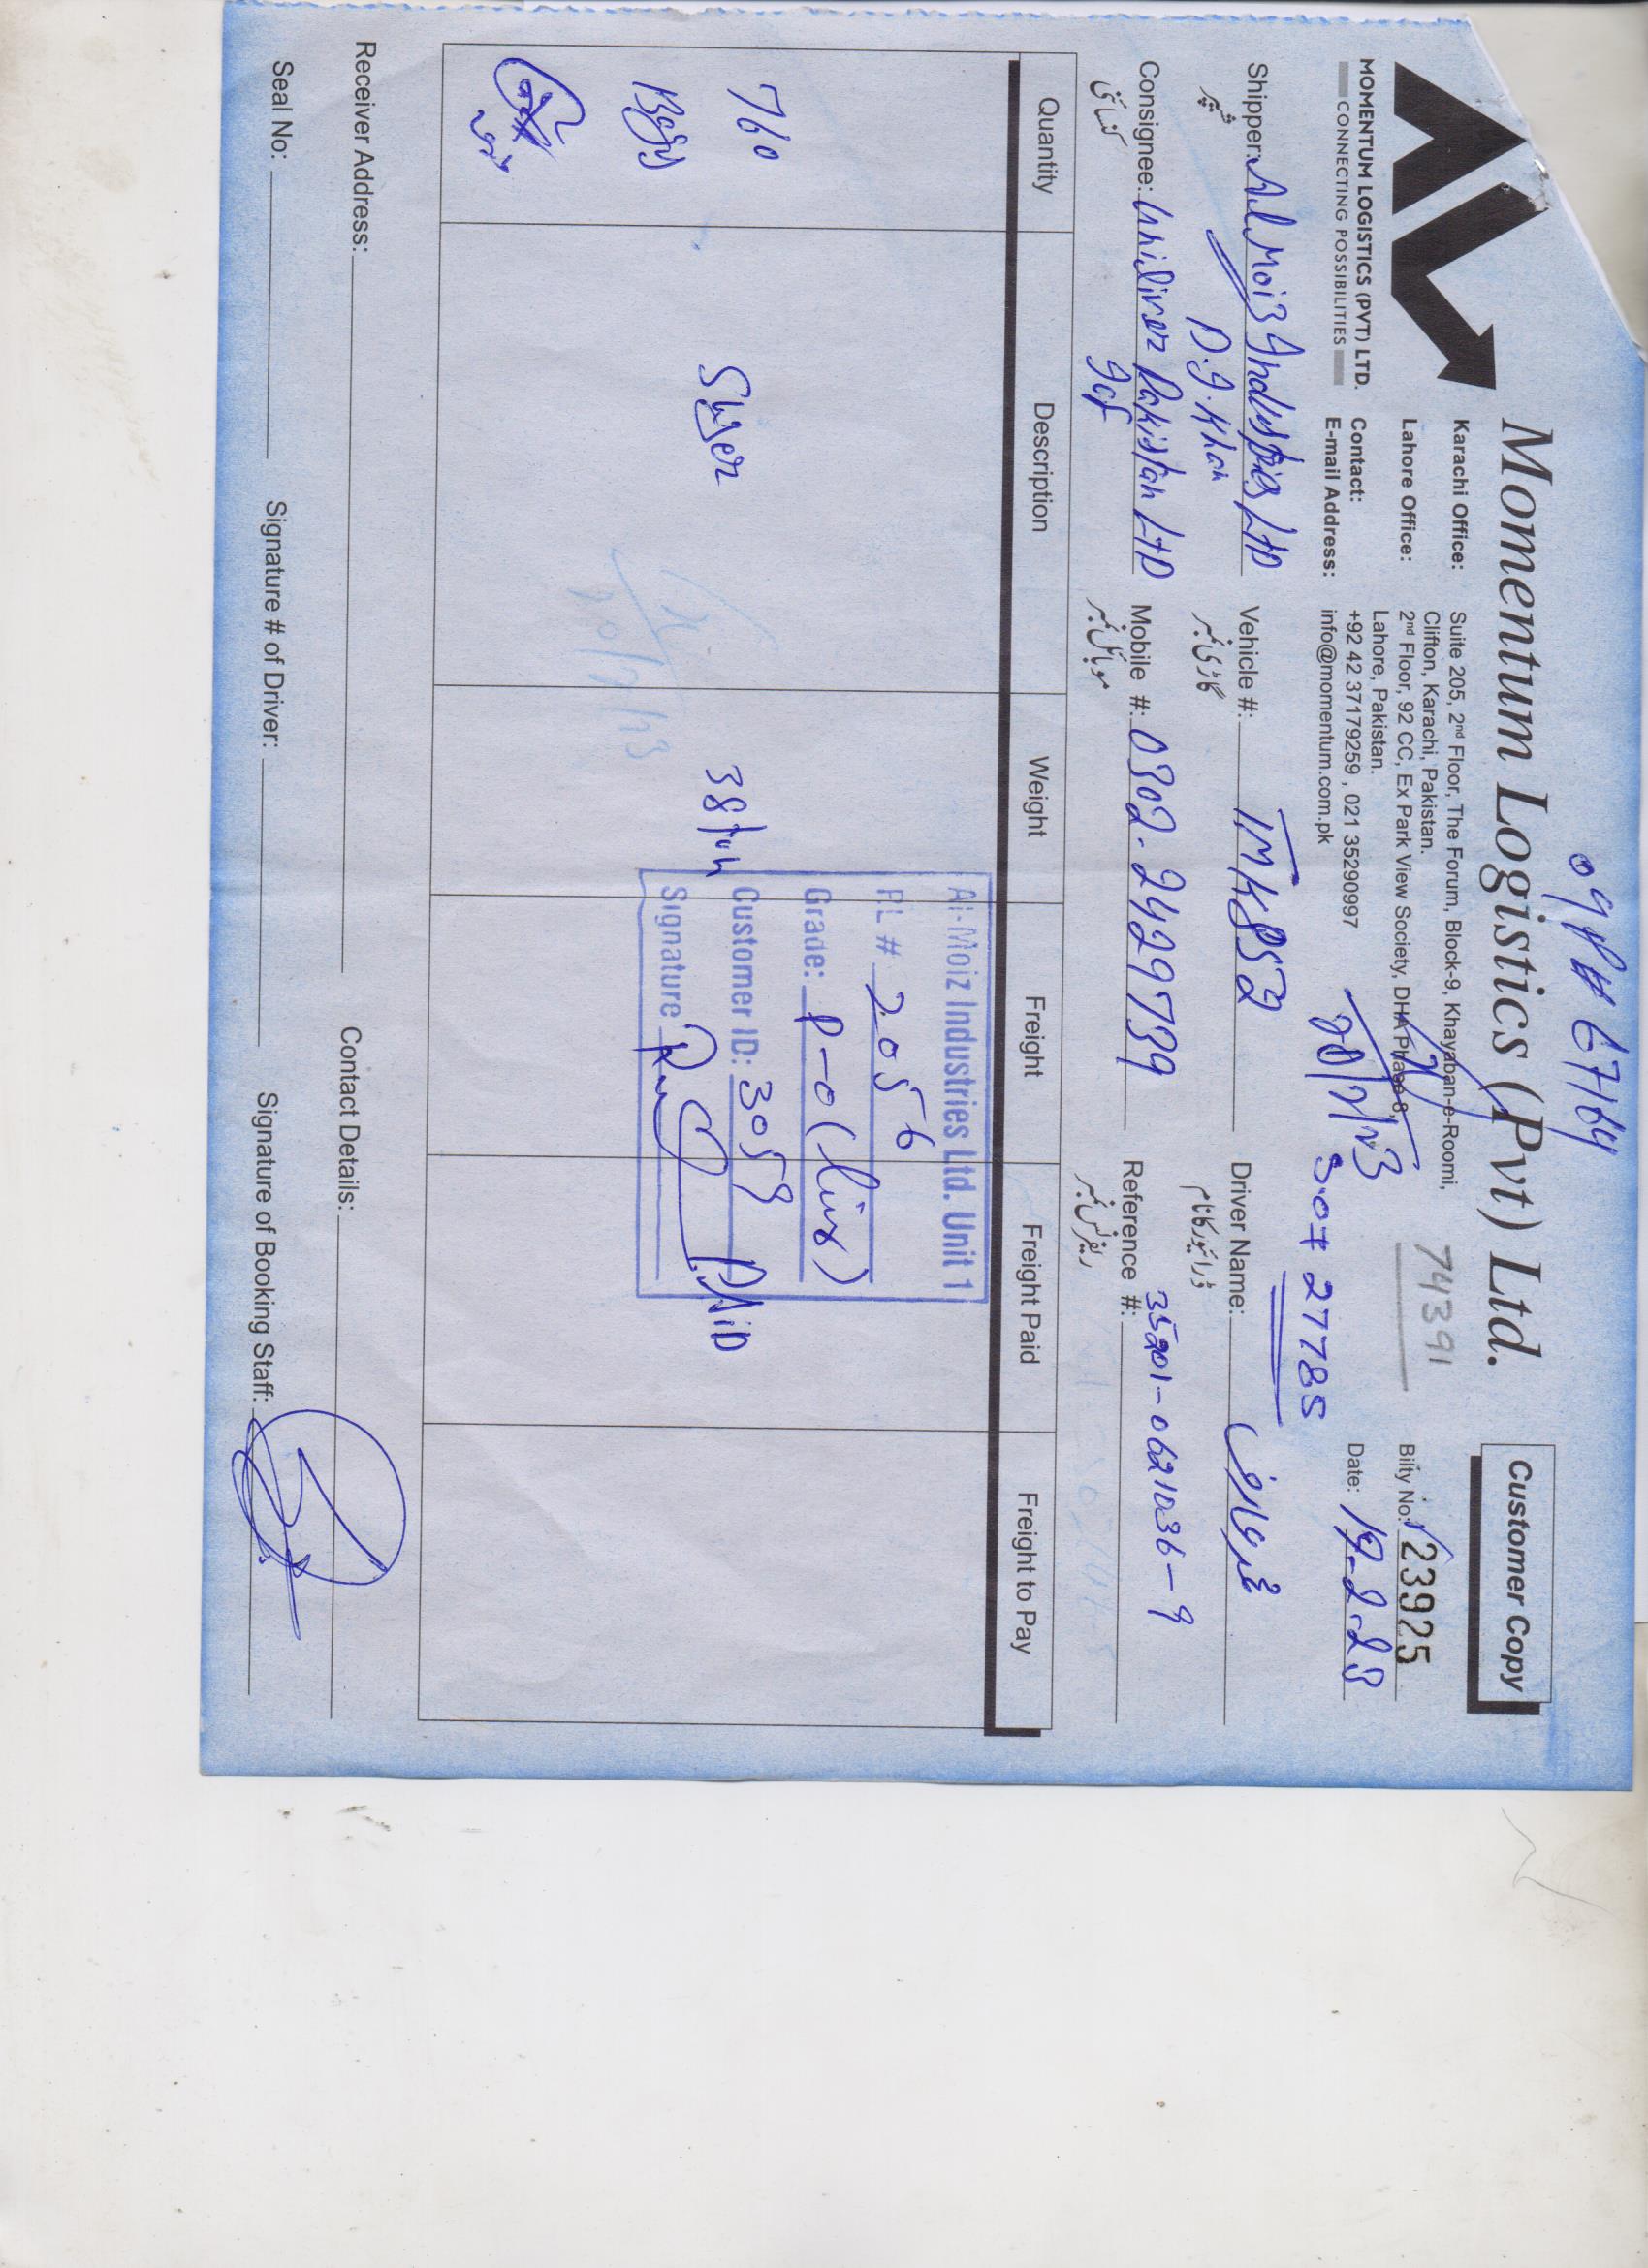 Momentum Logistics (Pvt) Ltd.
Customer Copy
MOMENTUM LOGISTICS (PVT) LTD.
CONNECTING POSSIBILITIES
Karachi Office: Suite 205, 2nd Floor, The Forum, Block-9, Khayaban-e-Roomi,
Clifton, Karachi, Pakistan.
Lahore Office: 2nd Floor, 92 CC, Ex Park View Society, DHA Phase 8,
Lahore, Pakistan.
Contact: +92 42 37179259 , 021 35290997
E-mail Address: info@momentum.com.pk
74391
Bilty No: 23925
Date: 19-2-23
20/2/23
27785
Shipper: Al Moiz Industries LTD
شپر
D.I.Khan
Vehicle #: TMK852
گاڑی نمبر
Driver Name:
ڈرائیور کا نام
Consignee: Uniliver Pakistan LTD
کنسائنی
Mobile #: 0302-2429739
موبائل نمبر
Reference #: 35201-0621036-9
ریفرنس نمبر
Quantity Description Weight Freight Freight Paid Freight to Pay
760
Bags
Suger
38 ton
PAiD
Al-Moiz Industries Ltd. Unit 1
P.L # 2056
Grade: P-0
Customer ID: 3059
Signature
Receiver Address: Contact Details:
Seal No: Signature # of Driver: Signature of Booking Staff: